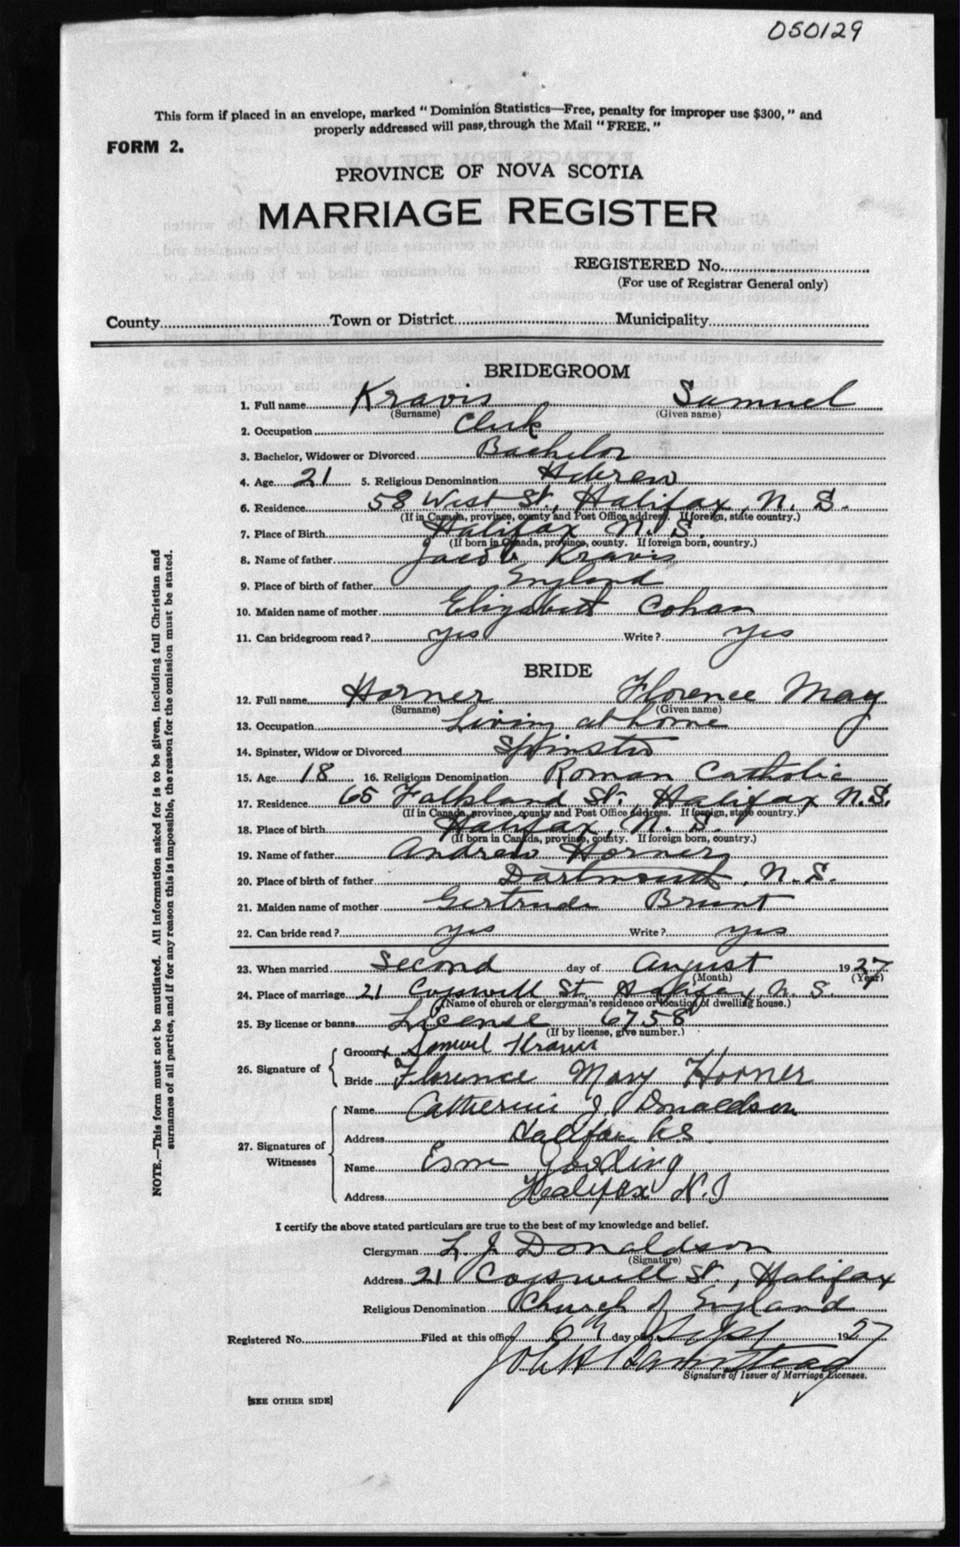 050129
This form if placed in an envelope, marked "Dominion Statistics—Free, penalty for improper use $300," and
properly addressed will pass, through the Mail "FREE."
FORM 2.
PROVINCE OF NOVA SCOTIA
MARRIAGE REGISTER
REGISTERED No.
(For use of Registrar General only)
County Town or District Municipality
BRIDEGROOM
1. Full name Kravis Samuel
(Surname) (Given name)
2. Occupation Clerk
3. Bachelor, Widower or Divorced Bachelor
4. Age 21 5. Religious Denomination Hebrew
6. Residence 58 West St, Halifax, N. S.
(If in Canada, province, county and Post Office address. If foreign, state country.)
7. Place of Birth Halifax N. S.
(If born in Canada, province, county. If foreign born, country.)
8. Name of father Jacob Kravis
9. Place of birth of father England
10. Maiden name of mother Elizabeth Cohan
11. Can bridegroom read? yes Write? yes
BRIDE
12. Full name Horner Florence May
(Surname) (Given name)
13. Occupation Living at home
14. Spinster, Widow or Divorced Spinster
15. Age 18 16. Religious Denomination Roman Catholic
17. Residence 65 Falkland St., Halifax N.S.
(If in Canada, province, county and Post Office address. If foreign, state country.)
18. Place of birth Halifax, N. S.
(If born in Canada, province, county. If foreign born, country.)
19. Name of father Andrew Horner
20. Place of birth of father Dartmouth, N.S.
21. Maiden name of mother Gertrude Brunt
22. Can bride read? yes Write? yes
23. When married Second day of August 1927
(Month) (Year)
24. Place of marriage 21 Cogswell St. Halifax, N. S.
(Name of church or clergyman's residence or location of dwelling house.)
25. By license or banns License 6758
(If by license, give number.)
26. Signature of
Groom x Samuel Kravis
Bride Florence Mary Horner
27. Signatures of Witnesses
Name Catherine J Donaldson
Address Halifax NS
Name Esm Gooding
Address Halifax N.S
I certify the above stated particulars are true to the best of my knowledge and belief.
Clergyman L. J. Donaldson
(Signature)
Address 21 Cogswell St., Halifax
Religious Denomination Church of England
Registered No. Filed at this office 6th day of Sept 1927
Signature of Issuer of Marriage Licenses.
[SEE OTHER SIDE]
NOTE.—This form must not be mutilated. All information asked for is to be given, including full Christian and
surnames of all parties, and if for any reason this is impossible, the reason for the omission must be stated.